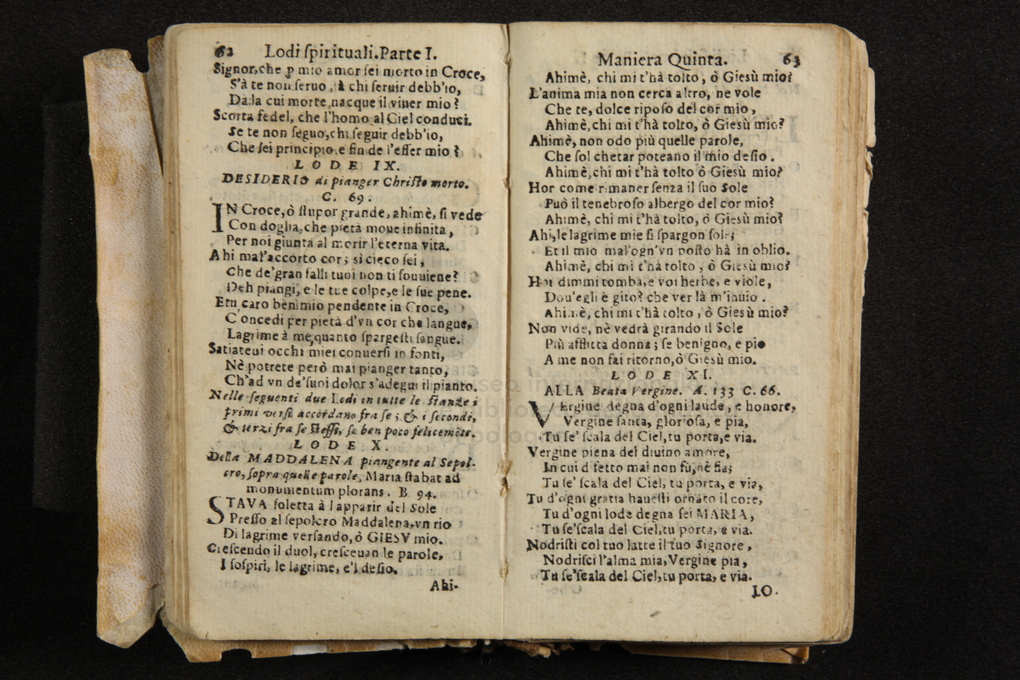 62 Lodi ſpirituali. Parte I.
Signor, che ꝑ mio amor ſei morto in Croce,
S'à te non ſeruo, à chi ſeruir debb'io,
Dalla cui morte nacque il viuer mio?
Scorta fedel, che l'homo al Ciel conduci.
Se te non ſeguo, chi ſeguir debb'io,
Che ſei principio, e fin de l'eſſer mio?
LODE IX.
DESIDERIO di pianger Chriſto morto.
C. 69.
IN Croce, ò ſtupor grande, ahimè, ſi vede
Con doglia, che pietà moue infinita,
Per noi giunta al morir l'eterna vita.
Ahi mal'accorto cor; sì cieco ſei,
Che de'gran falli tuoi non ti ſouuiene?
Deh piangi, e le tue colpe, e le ſue pene.
E tu caro ben mio pendente in Croce,
Concedi per pietà d'vn cor che langue,
Lagrime à me, quanto ſpargeſti ſangue.
Satiateui occhi miei conuerſi in fonti,
Nè potrete però mai pianger tanto,
Ch'ad vn de'ſuoi dolor s'adegui il pianto.
Nelle ſeguenti due Lodi in tutte le ſtanze i
primi verſi accordano fra ſe; & i ſecondi,
& terzi fra ſe ſteſſi, ſe ben poco felicemẽte.
LODE X.
Della MADDALENA piangente al Sepol-
cro, ſopra quelle parole, Maria ſtabat ad
monumentum plorans. B. 94.
STAVA ſoletta à l'apparir del Sole
Preſſo al ſepolcro Maddalena, vn rio
Di lagrime verſando, ò GIESV mio.
Creſcendo il duol, creſceuan le parole,
I ſoſpiri, le lagrime, e'l deſio.
Ahi-
Maniera Quinta. 63
Ahimè, chi mi t'hà tolto, ò Gieſù mio?
L'anima mia non cerca altro, ne vole
Che te, dolce ripoſo del cor mio,
Ahimè, chi mi t'hà tolto, ò Gieſù mio?
Ahimè, non odo più quelle parole,
Che ſol chetar poteano il mio deſio.
Ahimè, chi mi t'hà tolto ò Gieſù mio?
Hor come rimaner ſenza il ſuo Sole
Può il tenebroſo albergo del cor mio?
Ahimè, chi mi t'hà tolto, ò Gieſù mio?
Ahi, le lagrime mie ſi ſpargon ſole;
Et il mio mal'ogn'vn poſto hà in oblio.
Ahimè, chi mi t'hà tolto, ò Gieſù mio?
Hor dimmi tomba, e voi herbe, e viole,
Dou'egli è gito? che ver là m'inuio.
Ahimè, chi mi t'hà tolto, ò Gieſù mio?
Non vide, nè vedrà girando il Sole
Più afflitta donna; ſe benigno, e pio
A me non fai ritorno, ò Gieſù mio.
LODE XI.
ALLA Beata Vergine. A. 133 C. 66.
VErgine degna d'ogni laude, e honore,
Vergine ſanta, glorioſa, e pia,
Tu ſe' ſcala del Ciel, tu porta, e via.
Vergine piena del diuino amore,
In cui difetto mai non fù, nè fia;
Tu ſe' ſcala del Ciel, tu porta, e via,
Tu d'ogni gratia haueſti ornato il core,
Tu d'ogni lode degna ſei MARIA,
Tu ſe'ſcala del Ciel, tu porta, e via.
Nodriſti col tuo latte il tuo Signore,
Nodriſci l'alma mia, Vergine pia,
Tu ſe'ſcala del Ciel, tu porta, e via.
IO.